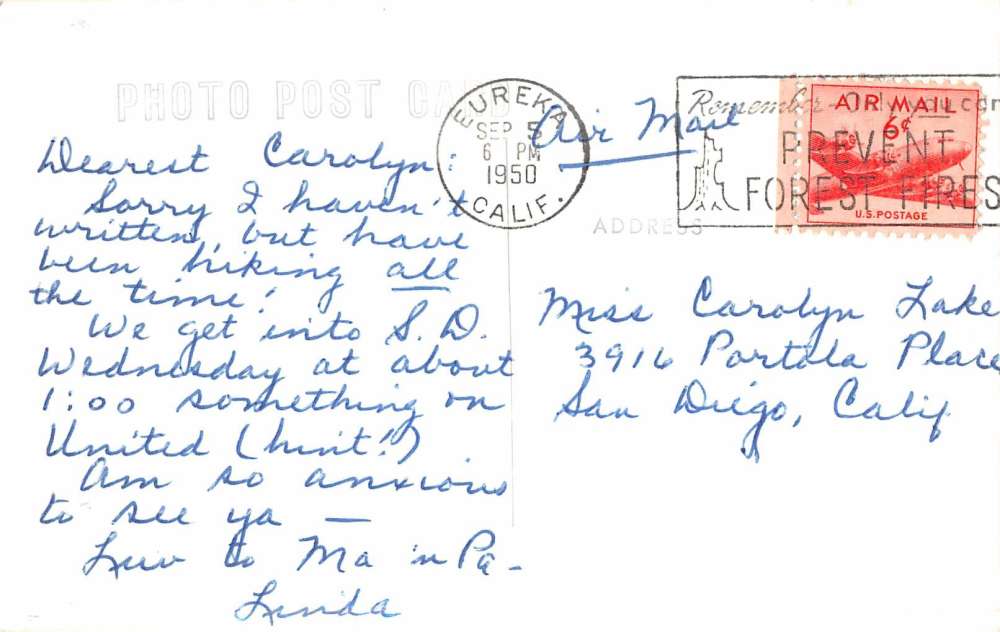 PHOTO POST CARD
EUREKA
SEP 5
6 PM
1950
CALIF.
Air Mail
Remember Only you can
PREVENT
FOREST FIRES
AIR MAIL
6¢
U.S. POSTAGE
ADDRESS
Dearest Carolyn:
Sorry I haven't
written, but have
been hiking all
the time!
We get into S.D.
Wednesday at about
1:00 something on
United (hint!)
Am so anxious
to see ya —
Luv to Ma 'n Pa -
Linda
Miss Carolyn Lake
3916 Portola Place
San Diego, Calif